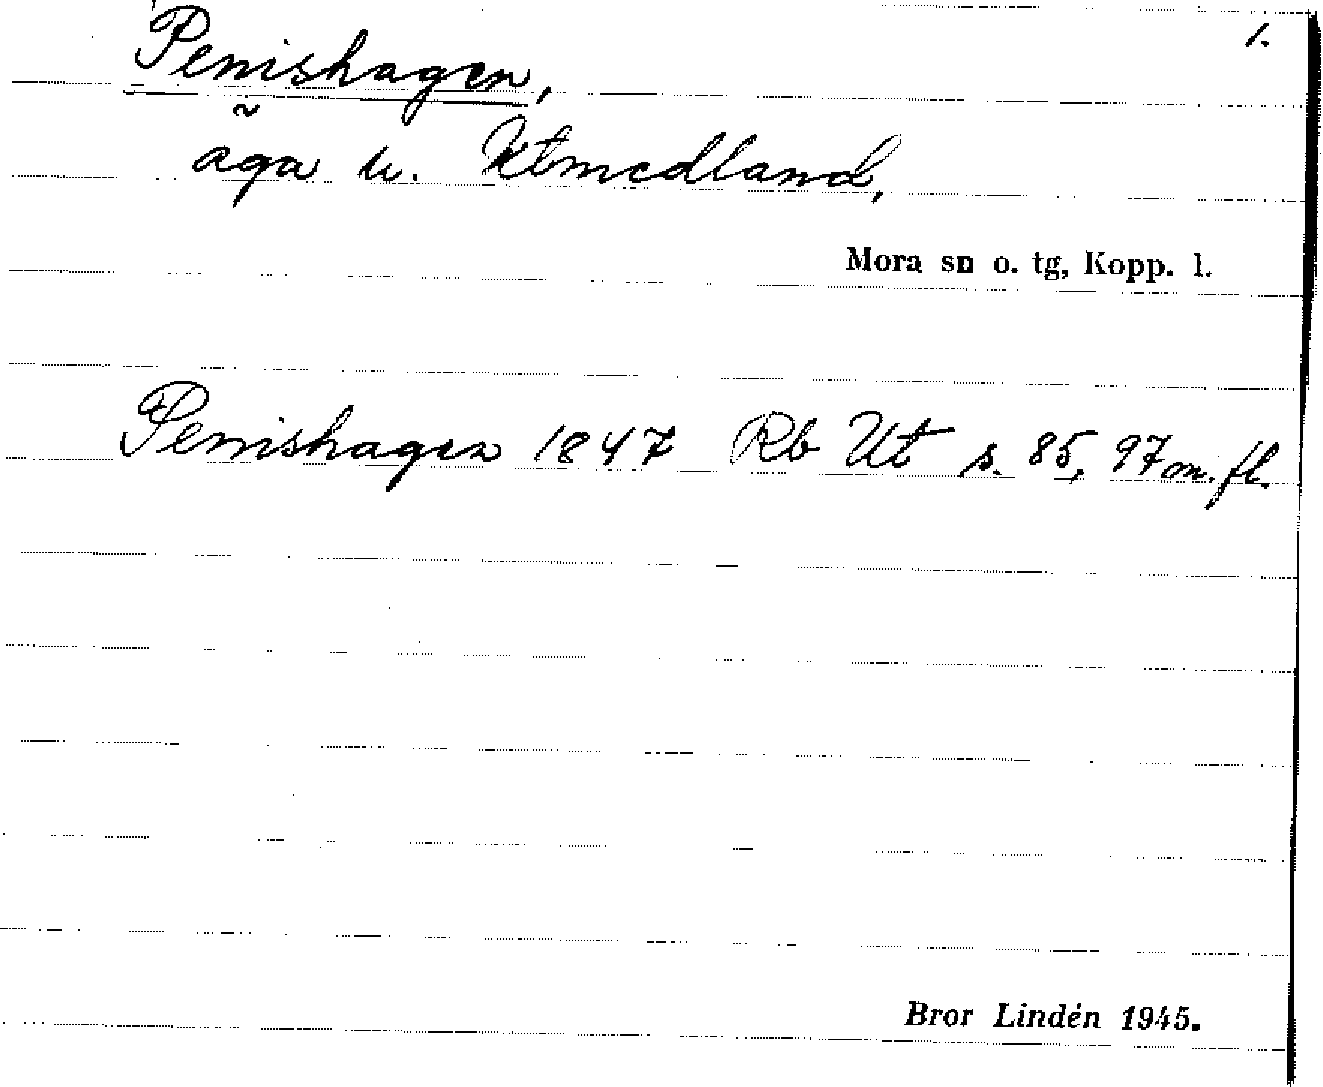 1.
Penishagen,
äga u. Utmedland,
Mora sn o. tg, Kopp. l.
Penishagen 1847 Rb Ut s. 85, 97 m. fl.
Bror Lindén 1945.